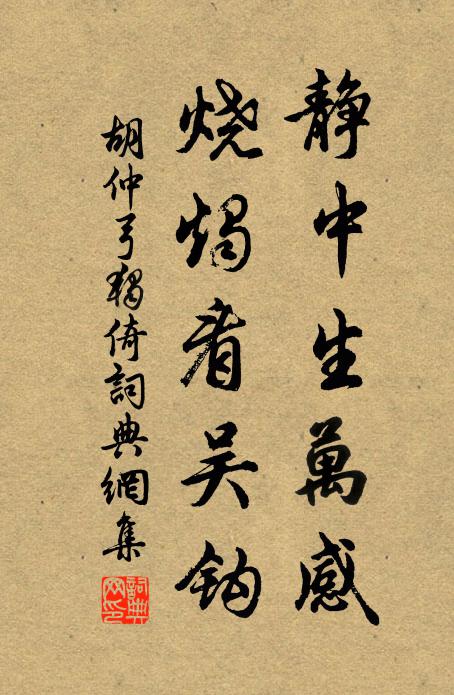 静中生萬感
烧燭看吴鈎
胡仲弓獨倚詞典網集
詞典網印